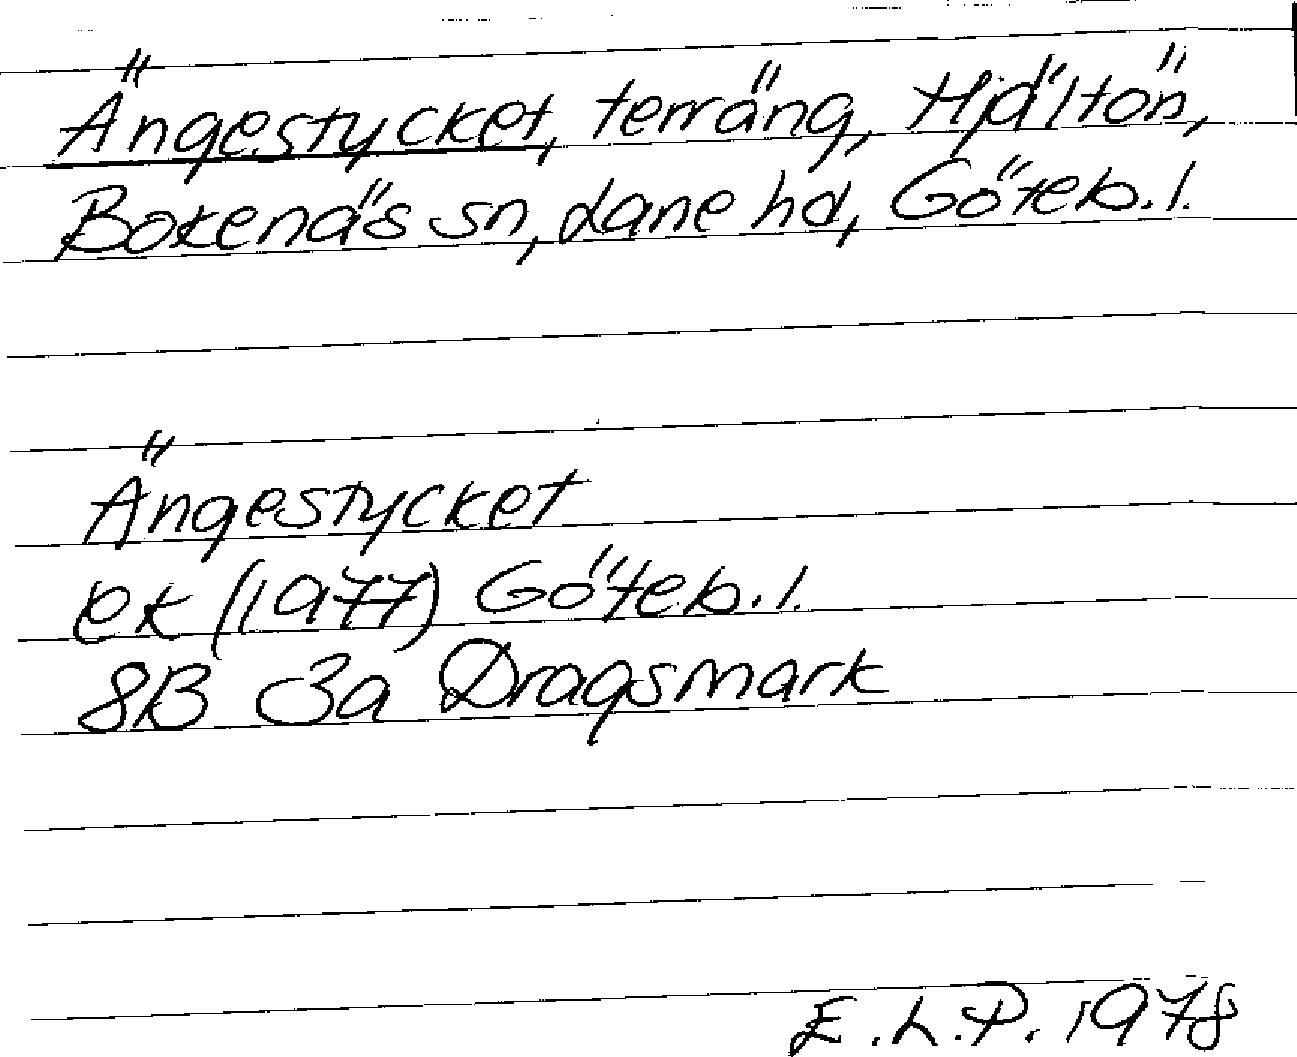 Ängestycket, terräng, Hjältön,
Bokenäs sn, Lane hd, Göteb.l.
Ängestycket
ek (1977) Göteb.l.
8B 3a Dragsmark
E.L.P. 1978